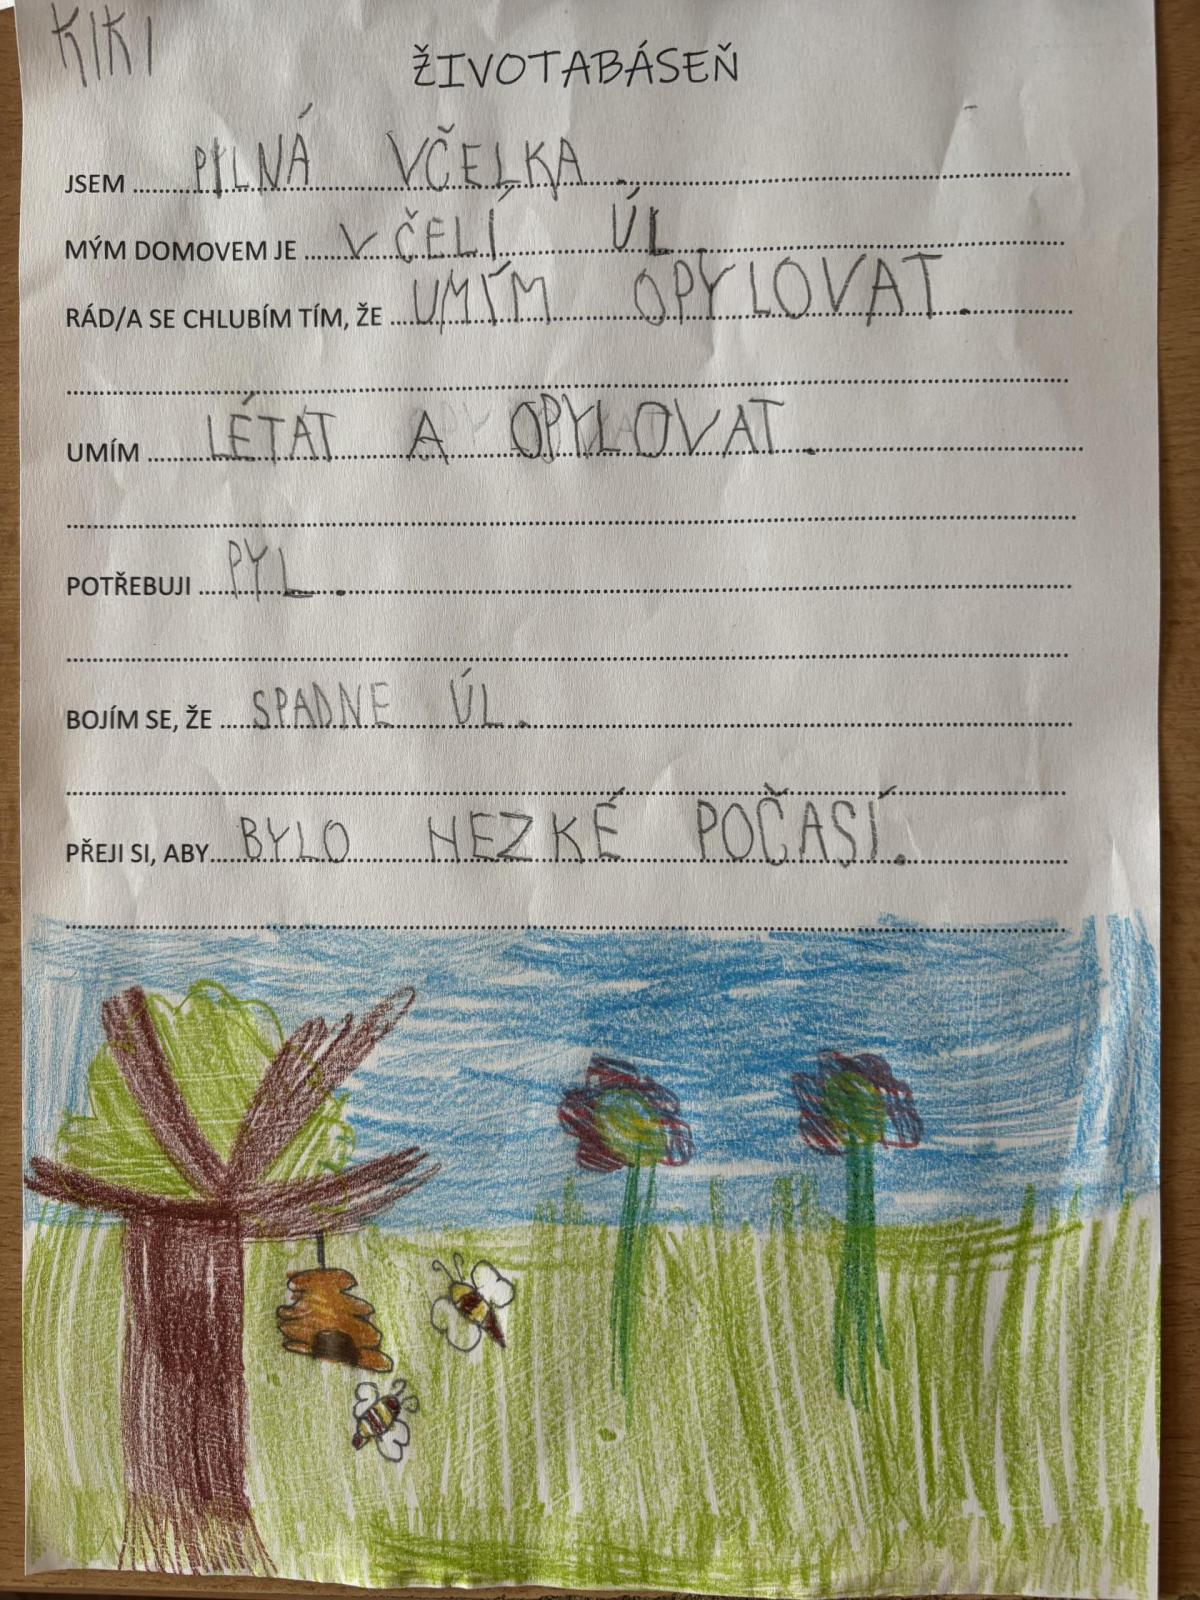 KIKI
ŽIVOTABÁSEŇ
JSEM PILNÁ VČELKA.
MÝM DOMOVEM JE VČELÍ ÚL.
RÁD/A SE CHLUBÍM TÍM, ŽE UMÍM OPYLOVAT.
UMÍM LÉTAT A OPYLOVAT.
POTŘEBUJI PYL.
BOJÍM SE, ŽE SPADNE ÚL.
PŘEJI SI, ABY BYLO HEZKÉ POČASÍ.